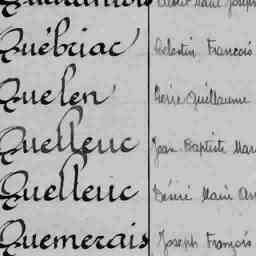 Québriac Célestin François
Quelen Pierre Guillaume
Quelleuc Jean Baptiste Mar
Quelleuc Désiré Marie
Quemerais Joseph François